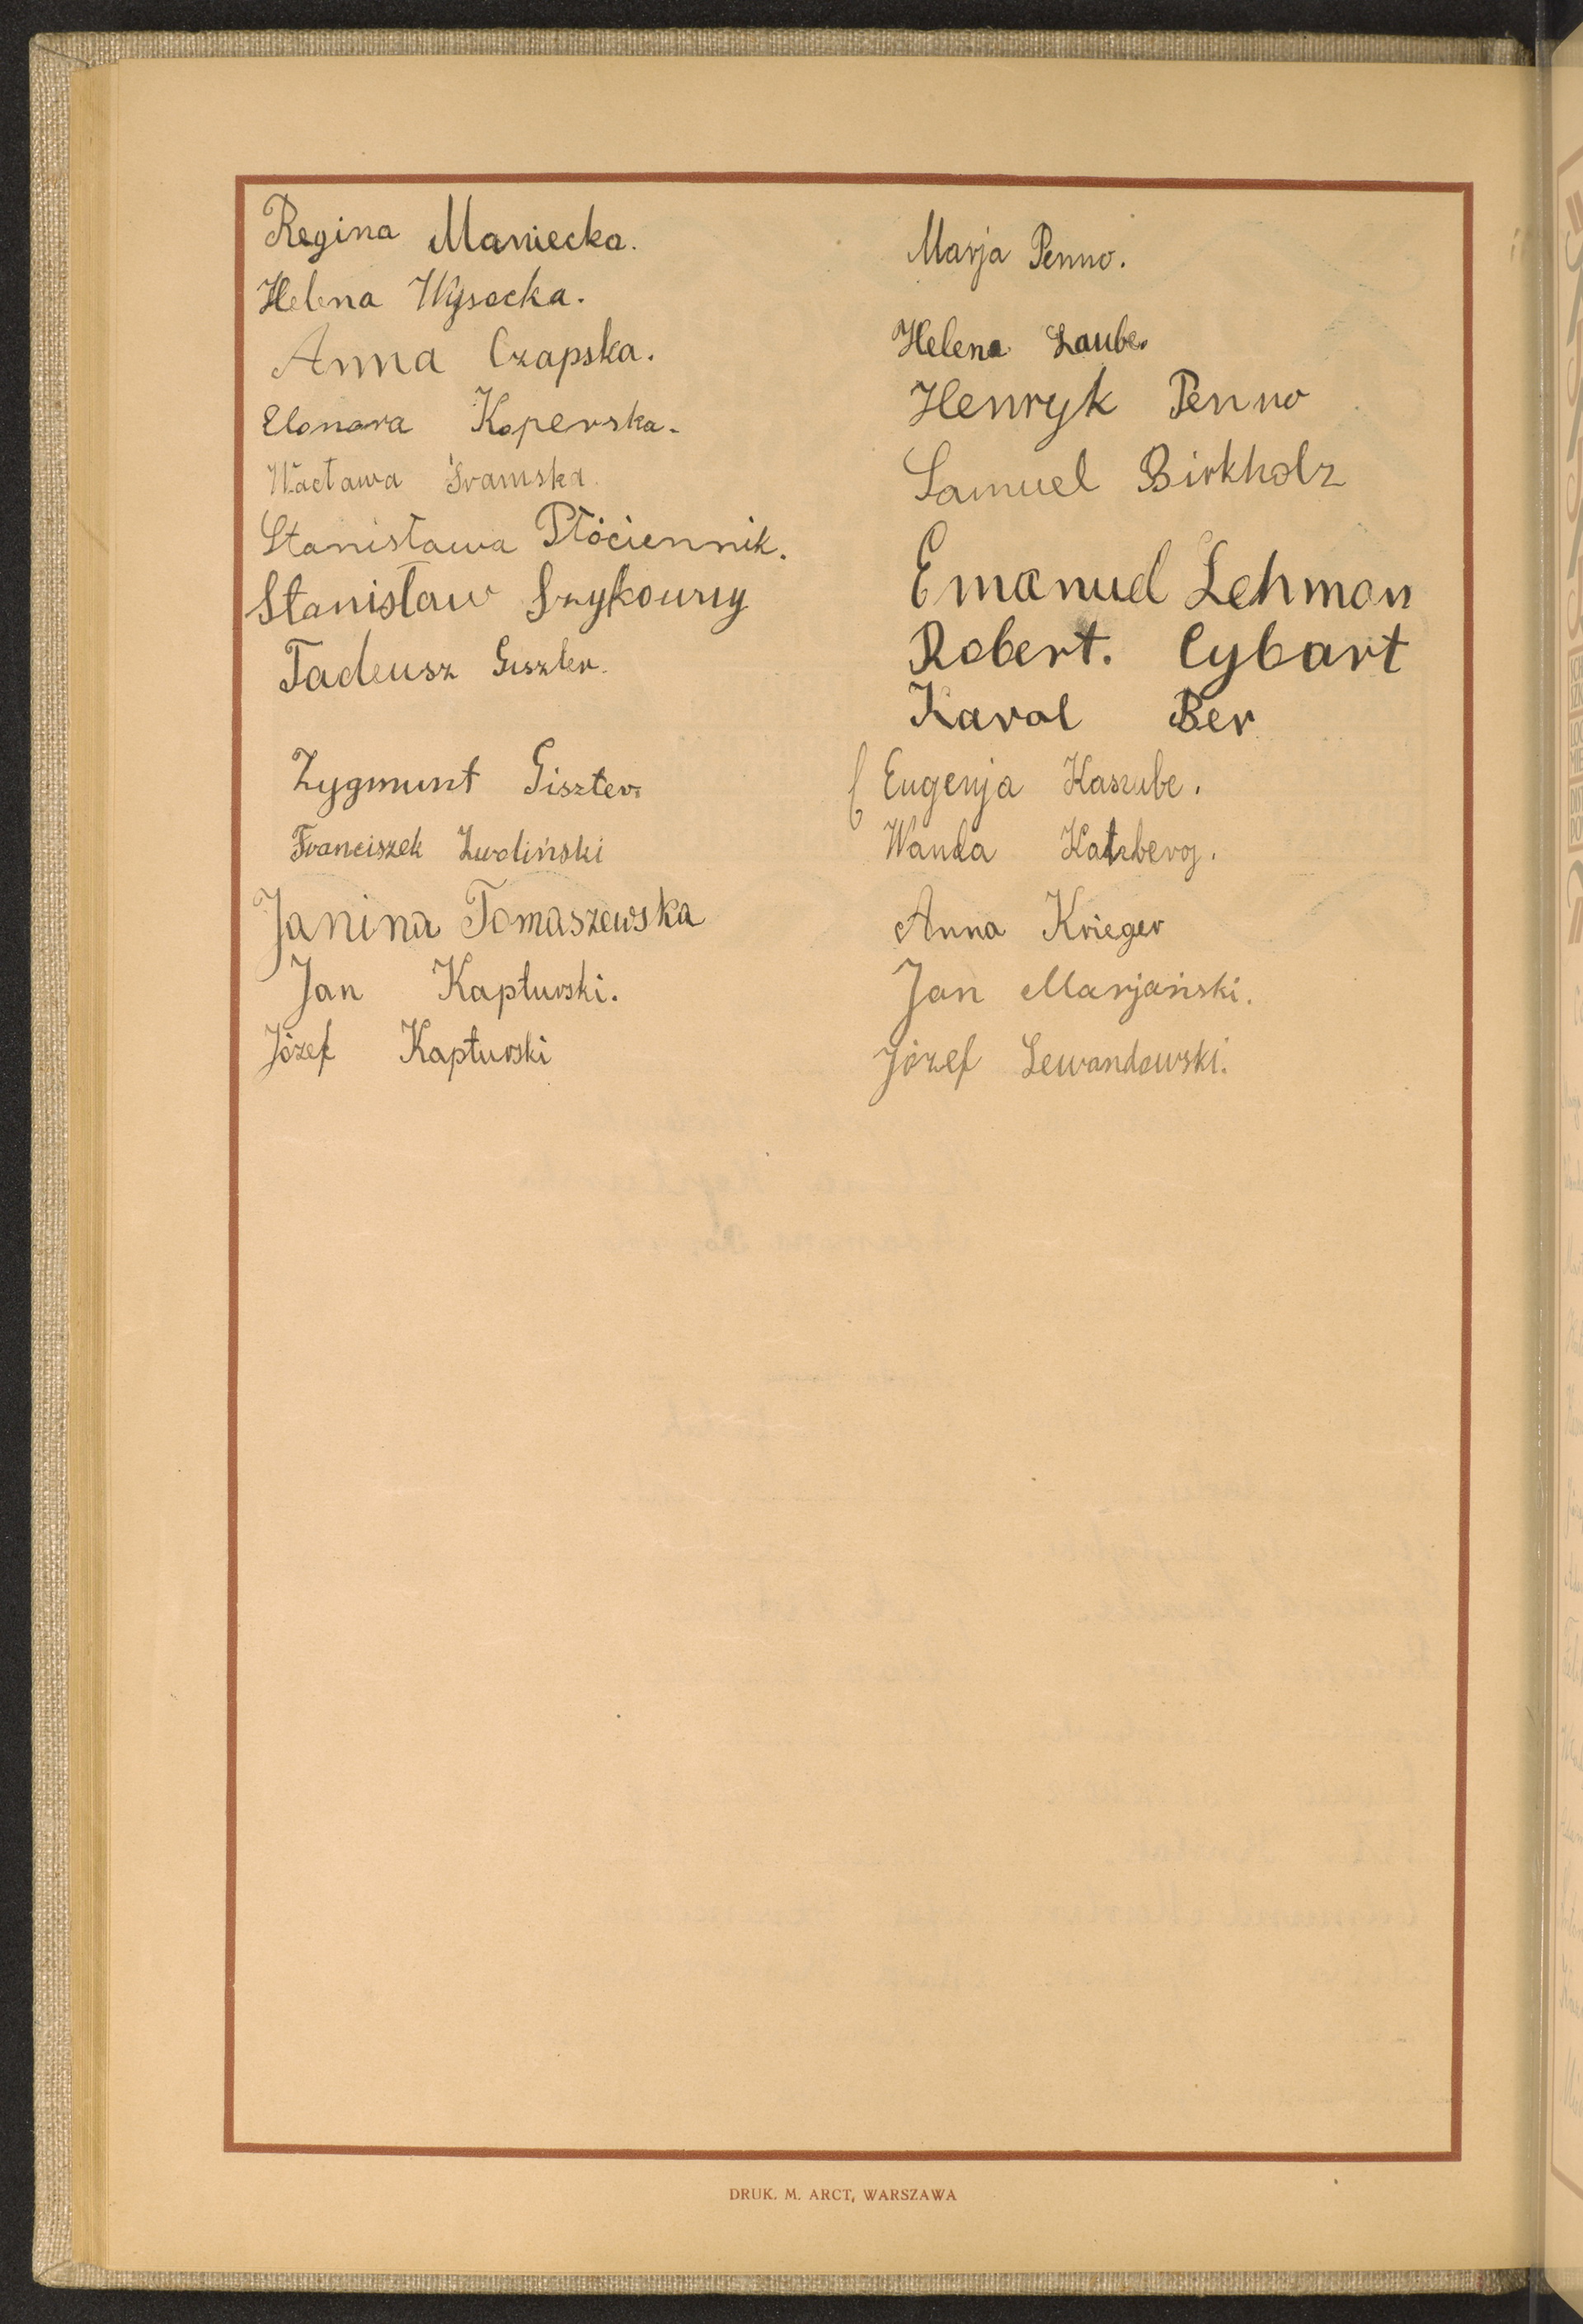 Regina Maniecka.
Helena Wysocka.
Anna Czapska.
Elonora Koperska.
Wacława Śramska.
Stanisława Płóciennik.
Stanisław Szykowny
Tadeusz Giszter.
Zygmunt Giszter.
Franciszek Zwoliński
Janina Tomaszewska
Jan Kapturski.
Józef Kapturski
Marja Penno.
Helena Laube.
Henryk Penno
Samuel Birkholz
Emanuel Lehman
Robert. Cybart
Karol Ber
Eugenja Kaszube.
Wanda Katzberg.
Anna Krieger
Jan Marjański.
Józef Lewandowski.
DRUK. M. ARCT, WARSZAWA